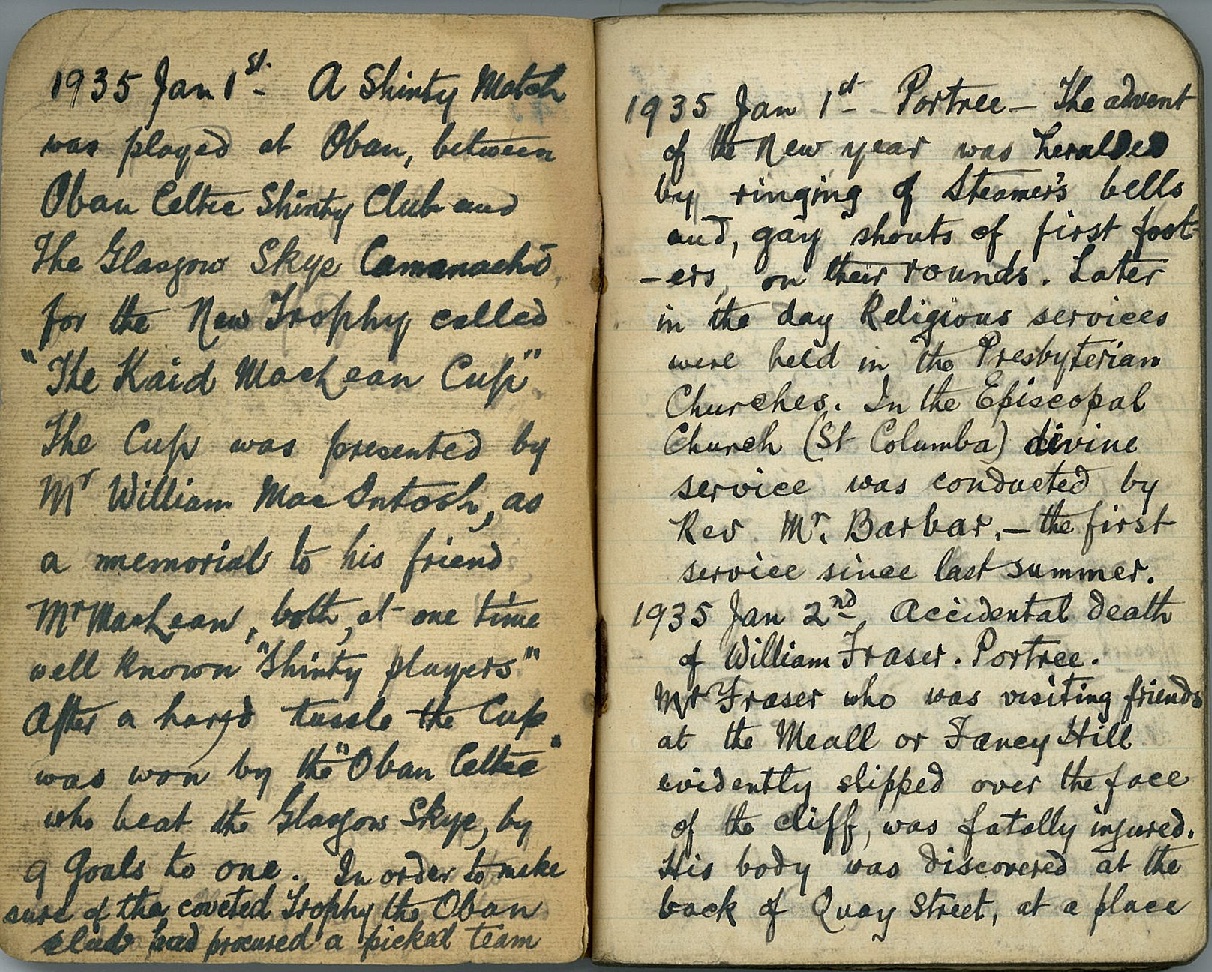 1935 Jan 1st. A Shinty Match
was played at Oban, between
Oban Celtic Shinty Club and
The Glasgow Skye Camanachd,
for the New Trophy called
"The Kaid MacLean Cup".
The Cup was presented by
Mr William MacIntosh, as
a memorial to his friend
Mr MacLean, both, at one time
well known "Shinty players"
After a hard tussle the Cup
was won by the "Oban Celtic"
who beat the Glasgow Skye, by
9 Goals to one. In order to make
sure of the coveted Trophy the Oban
club had procured a picked team
1935 Jan 1st - Portree - The advent
of the New year was heralded
by ringing of Steamer's bells
and, gay shouts of first foot-
-ers, on their rounds. Later
in the day Religious services
were held in the Presbyterian
Churches. In the Episcopal
Church (St Columba) divine
service was conducted by
Rev. Mr. Barbar, - the first
service since last summer.
1935 Jan 2nd, Accidental death
of William Fraser. Portree.
Mr Fraser who was visiting friends
at the Meall or Fancy Hill
evidently slipped over the face
of the cliff, was fatally injured.
His body was discovered at the
back of Quay Street, at a place